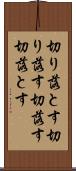 切り落とす切
り落す切落す
切落とす